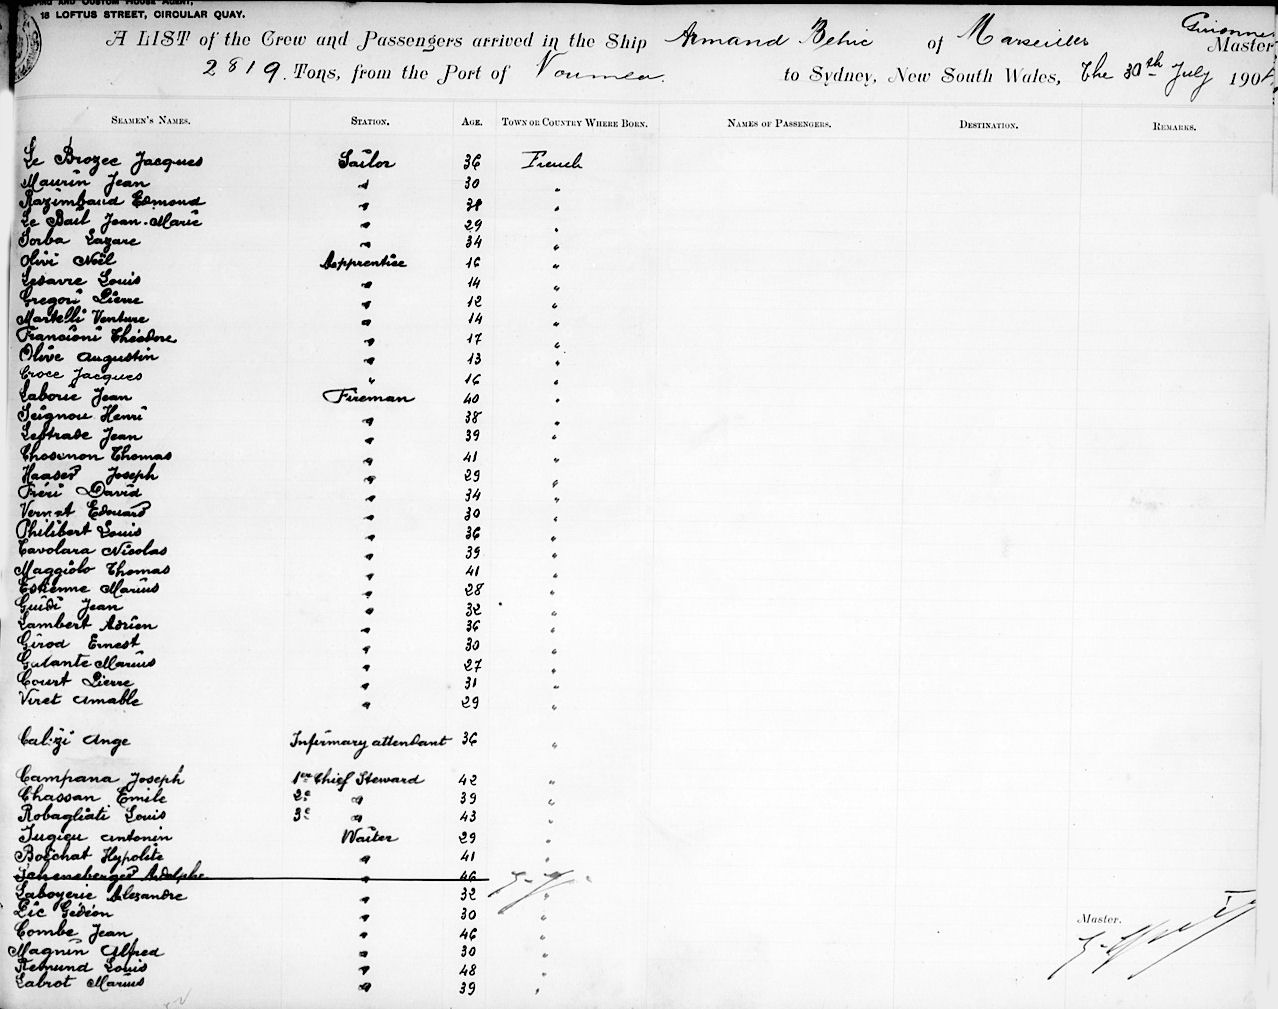 18 LOFTUS STREET, CIRCULAR QUAY.
A LIST of the Crew and Passengers arrived in the Ship Armand Behic of Marseilles Master
2819. Tons, from the Port of Noumea. to Sydney, New South Wales, the 30th July 190
SEAMEN'S NAMES. STATION. AGE. TOWN OR COUNTRY WHERE BORN. NAMES OF PASSENGERS. DESTINATION. REMARKS.
Le Brozec Jacques Sailor 36 French
Maurin Jean " 30 "
Razimbaud Edmond " 38 "
Le Bail Jean-Marie " 29 "
Sorba Lazare " 34 "
Olivi Noël Apprentice 16 "
Lesavre Louis " 14 "
Gregori Pierre " 12 "
Martelli Venture " 14 "
Francioni Théodore " 17 "
Olive Augustin " 13 "
Croce Jacques " 16 "
Laborie Jean Fireman 40 "
Seignou Henri " 38 "
Lestrade Jean " 39 "
Chosenon Thomas " 41 "
Haaser Joseph " 29 "
Fréri David " 34 "
Vernet Edouard " 30 "
Philibert Louis " 36 "
Cavolara Nicolas " 39 "
Maggiolo Thomas " 41 "
Estienne Marius " 28 "
Guidi Jean " 32 "
Lambert Adrien " 36 "
Girod Ernest " 30 "
Galante Marius " 27 "
Court Pierre " 31 "
Viret Amable " 29 "
Calizi Ange Infirmary attendant 36 "
Campana Joseph 1er Chief Steward 42 "
Chassan Emile 2e " 39 "
Robagliati Louis 3e " 43 "
Jugieu Antonin Waiter 29 "
Boichat Hypolite " 41 "
Scheneberger Adolphe " 46
Laboyerie Alexandre " 32 "
Lic Gédéon " 30 "
Combe Jean " 46 "
Magnin Alfred " 30 "
Remund Louis " 48 "
Labrot Marius " 39 "
Master.